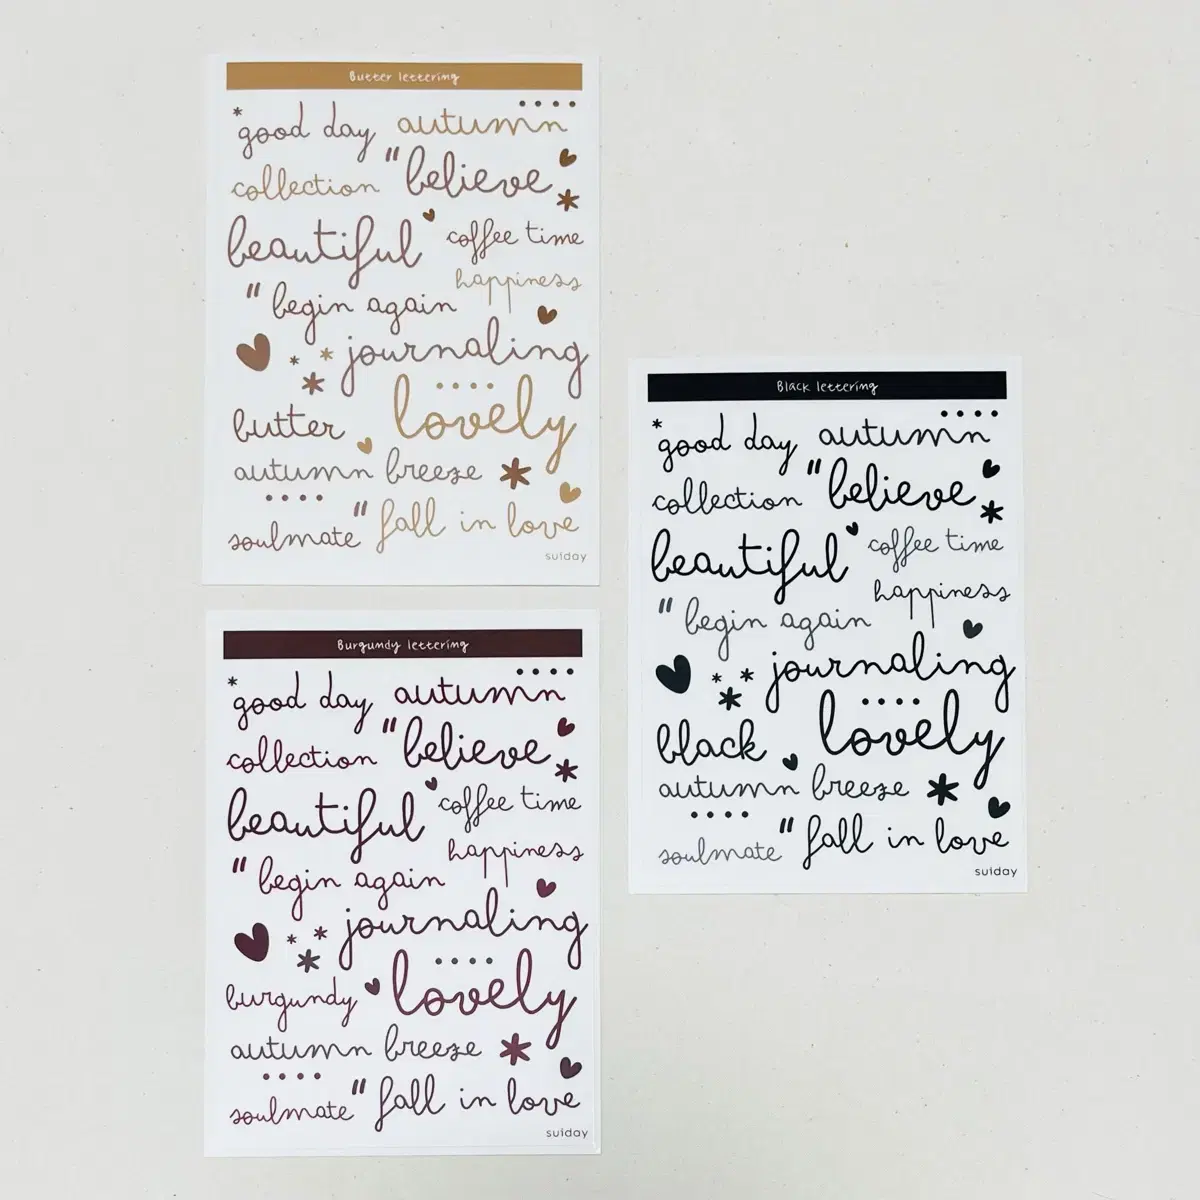 Butter lettering
good day autumn
collection "believe
beautiful coffee time
happiness
"begin again
journaling
butter lovely
autumn breeze
soulmate "fall in love
suiday
Burgundy lettering
good day autumn
collection "believe
beautiful coffee time
happiness
"begin again
journaling
burgundy lovely
autumn breeze
soulmate "fall in love
suiday
Black lettering
good day autumn
collection "believe
beautiful coffee time
happiness
"begin again
journaling
black lovely
autumn breeze
soulmate "fall in love
suiday